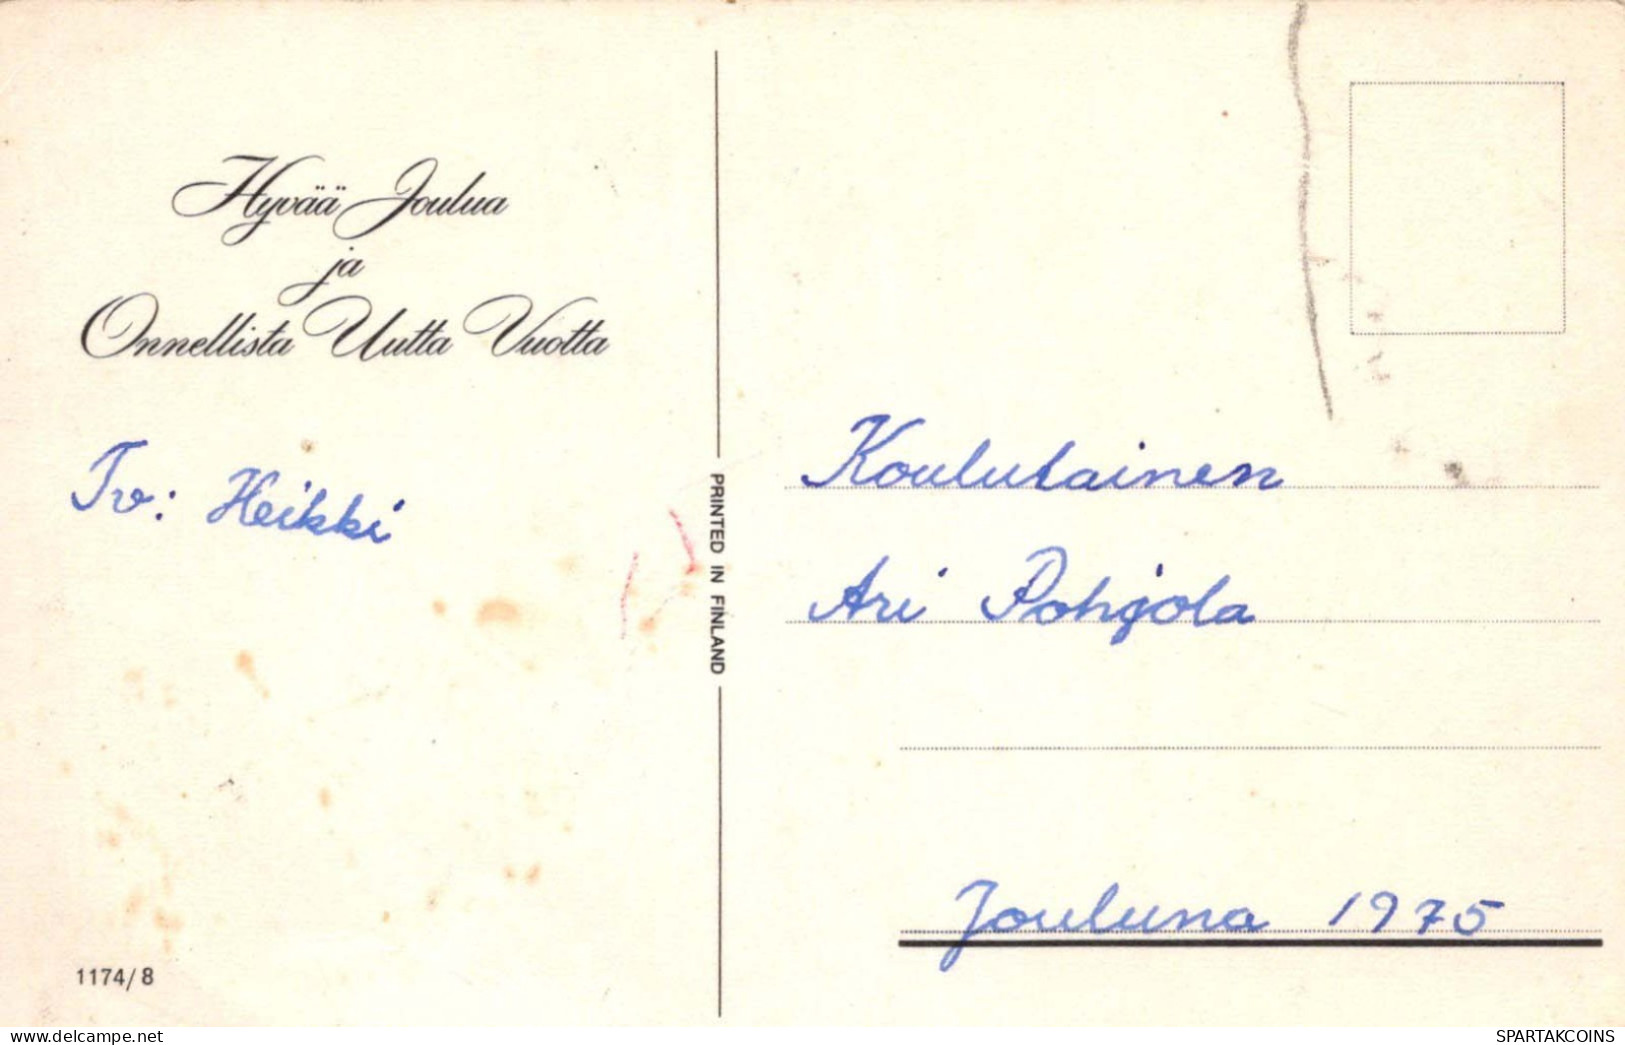 Hyvää Joulua
ja
Onnellista Uutta Vuotta
Tv: Heikki
1174/8
PRINTED IN FINLAND
Koululainen
Ari Pohjola
Jouluna 1975
delcampe.net
SPARTAKCOINS